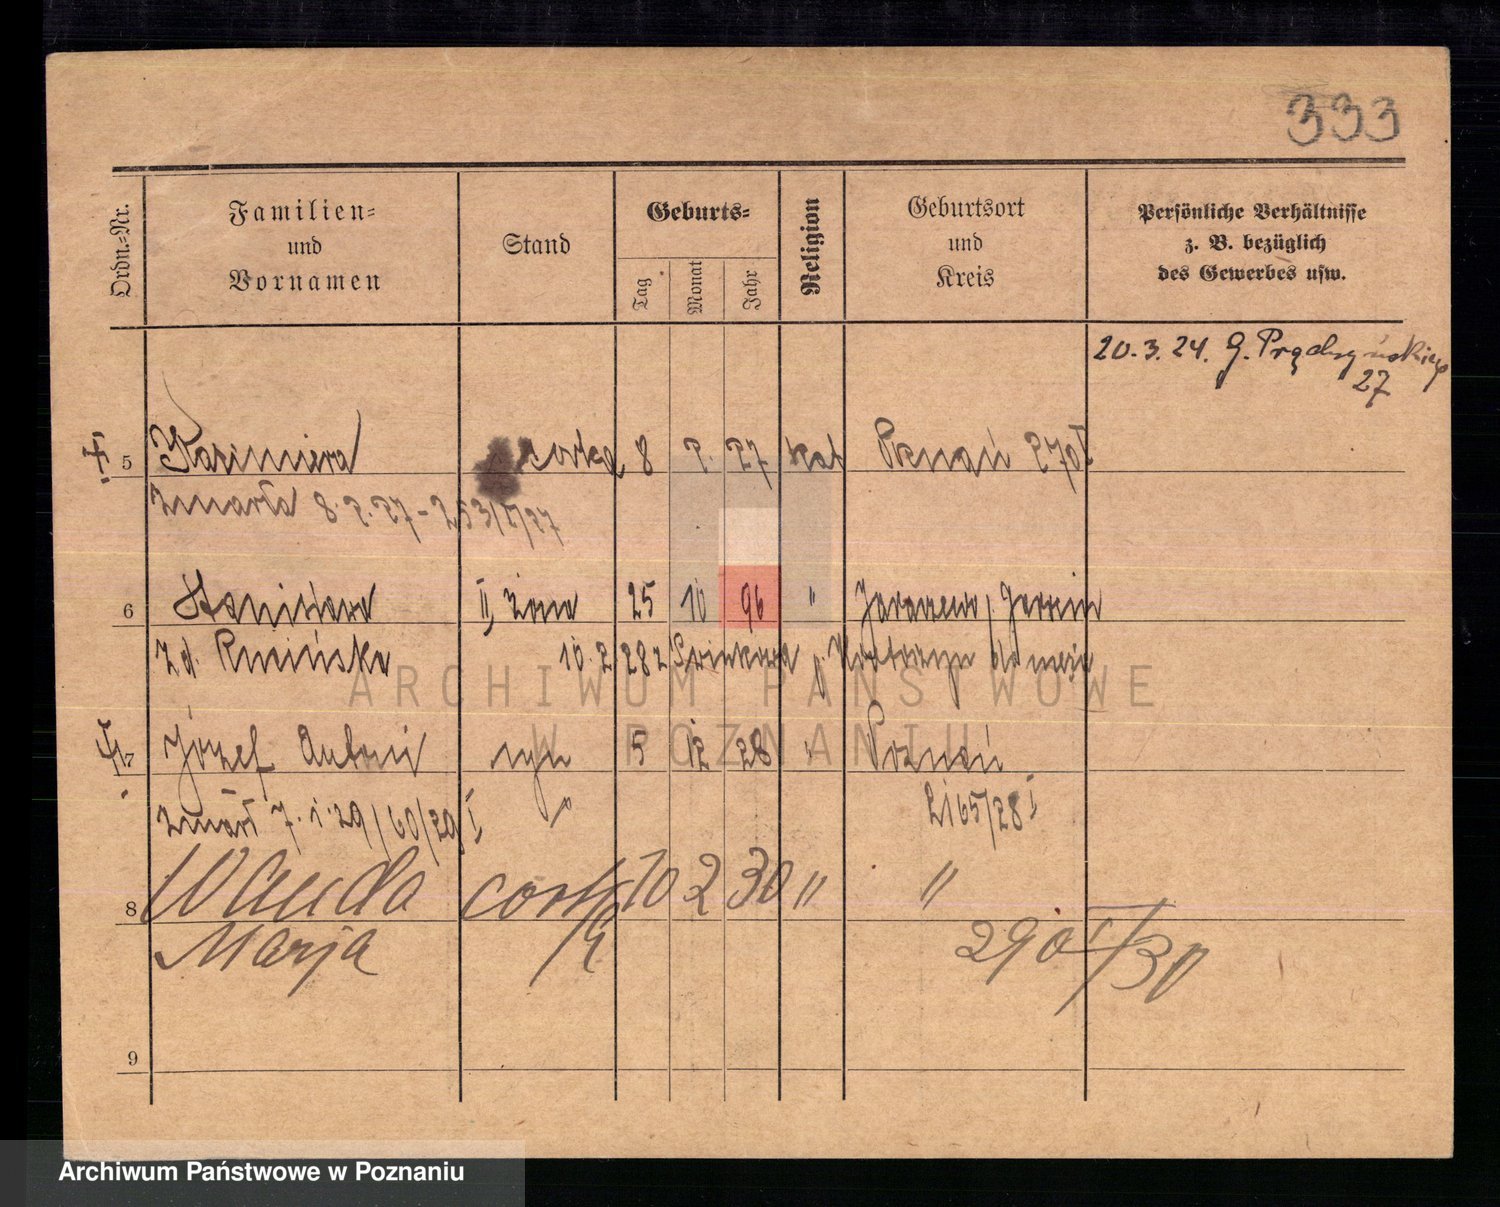 333
Ordn.-Nr.
Familien-
und
Vornamen
Stand
Geburts-
Tag
Monat
Jahr
Religion
Geburtsort
und
Kreis
Persönliche Verhältnisse
z. B. bezüglich
des Gewerbes usw.
20.3.24. G. Prądzyńskiego
27
5 Kazimiera córka 8 2. 27 kat Poznań 270 I
zmarła 8.2.27 - 253/I/27
6 Stanisława II, żona 25 10 96 " Jaraczewo, Jarocin
z d. 10.2 28 z
ARCHIWUM PAŃSTWOWE
W POZNANIU
7 Józef Antoni syn 5 12 28 " Poznań
zmarł 7.1.29/60/29 I 2165/28 I
8 Wanda córka 10 2 30 " "
Marja 290 I/30
9
Archiwum Państwowe w Poznaniu